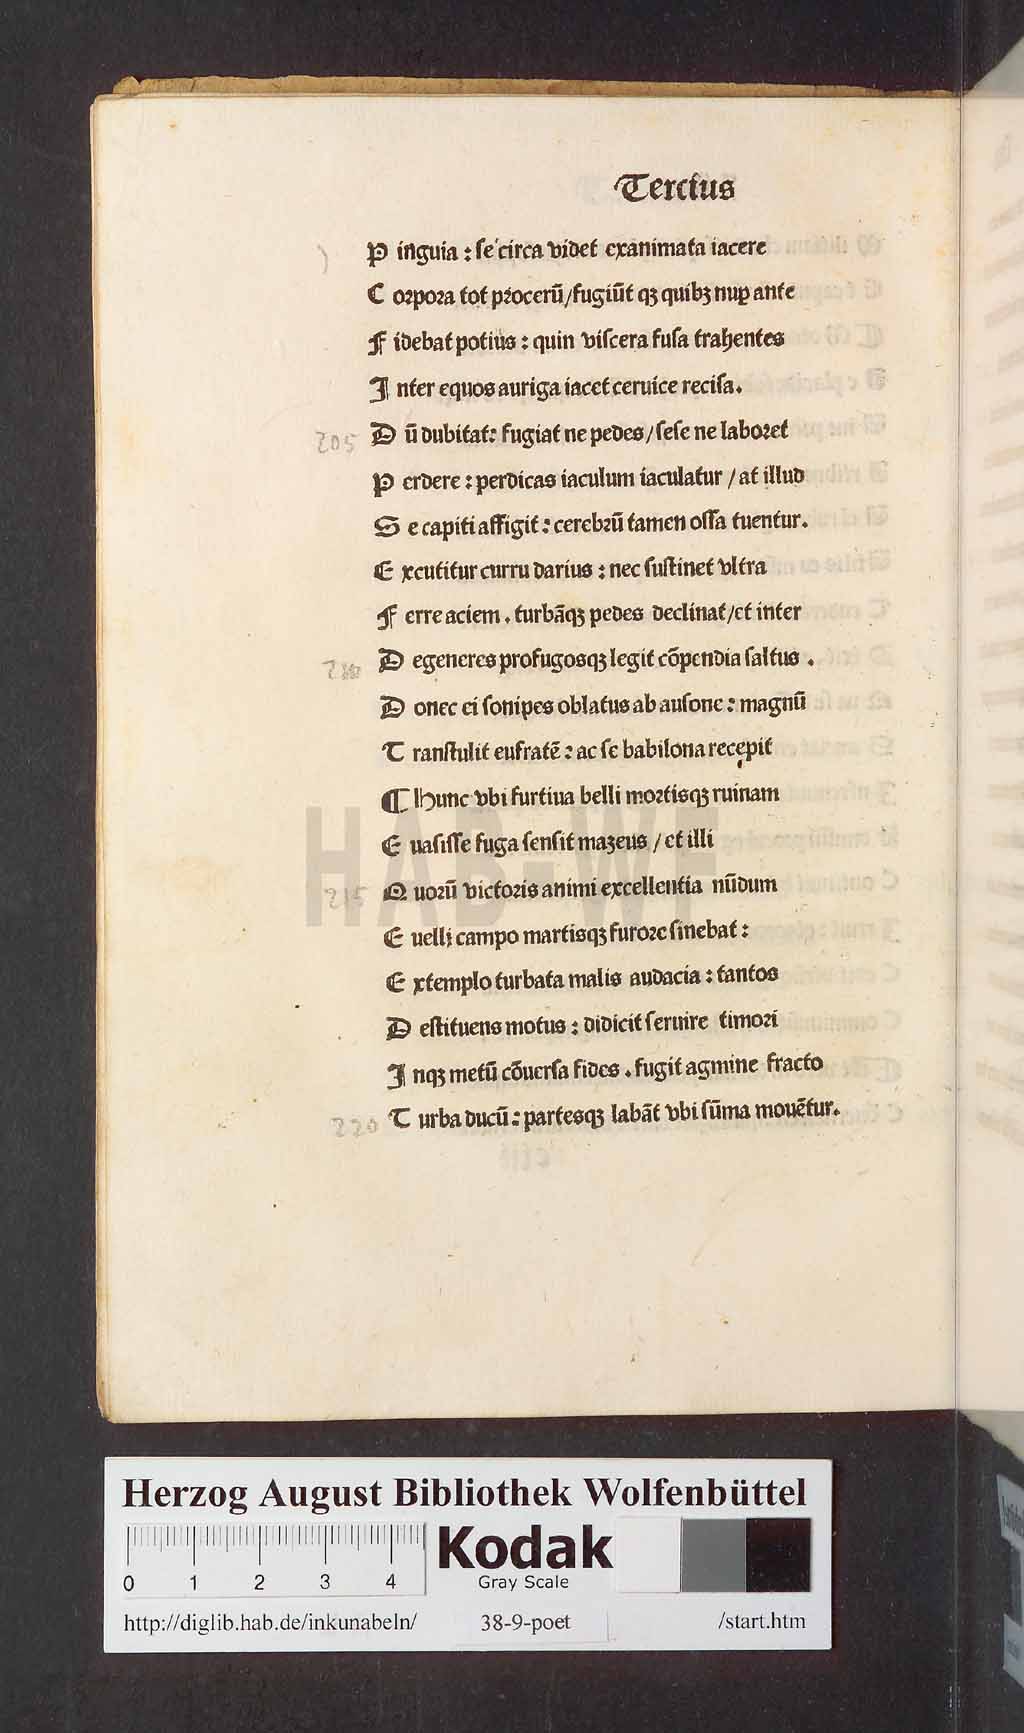 Tercius
P inguia : se circa videt exanimata iacere
C orpora tot procerū/fugiūt qꝫ quibꝫ nuꝑ ante
F idebat potius : quin viscera fusa trahentes
I nter equos auriga iacet ceruice recisa.
205 D ū dubitat: fugiat ne pedes/sese ne laboret
P erdere : perdicas iaculum iaculatur / at illud
S e capiti affigit : cerebrū tamen ossa tuentur.
E xcutitur curru darius : nec sustinet vltra
F erre aciem . turbāqꝫ pedes declinat/et inter
210 D egeneres profugosqꝫ legit cōpendia saltus .
D onec ei sonipes oblatus ab ausone : magnū
T ranstulit eufratē : ac se babilona recepit
¶ Hunc vbi furtiua belli mortisqꝫ ruinam
E uasisse fuga sensit mazeus / et illi
215 Q uorū victoris animi excellentia nūdum
E uelli campo martisqꝫ furore sinebat :
E xtemplo turbata malis audacia : tantos
D estituens motus : didicit seruire timori
I nqꝫ metū cōuersa fides . fugit agmine fracto
220 T urba ducū : partesqꝫ labāt vbi sūma mouētur.
HAB-WF
Herzog August Bibliothek Wolfenbüttel
0 1 2 3 4
Kodak
Gray Scale
http://diglib.hab.de/inkunabeln/ 38-9-poet /start.htm